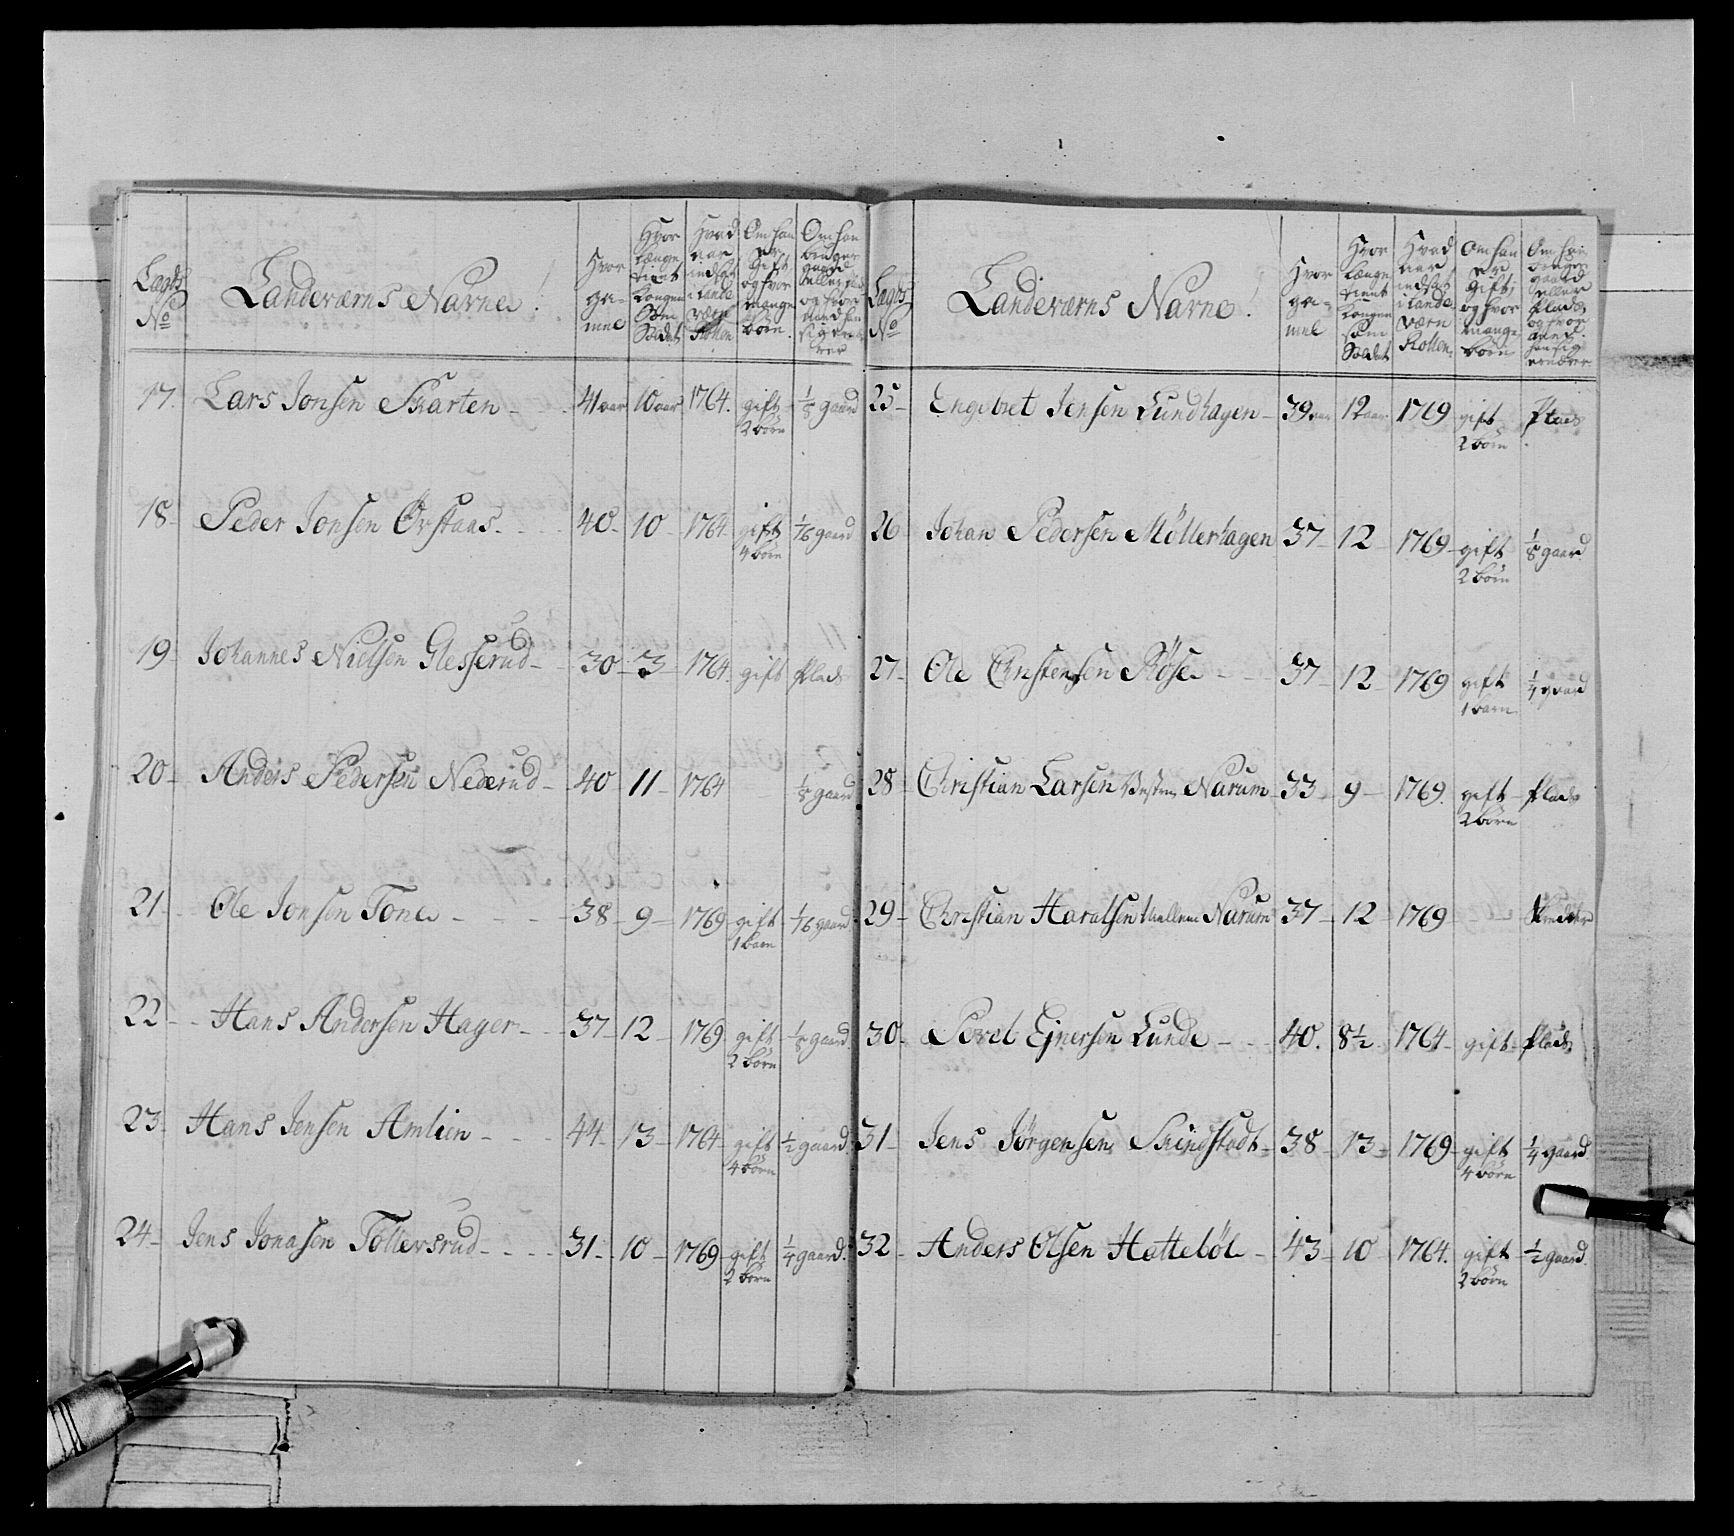 Lagds No
Landeværns Navne!
Hvor gamel
Hvor længe tient Kongen Som Soldat
Hvad aar indsat i Lande værn Rollen
Om han er Gift og hvor mange börn
Om han bruger gaard eller Plads og hvor
17. Lars Jonsen Skarten - 41 aar 10 aar 1764. gift 2 börn 1/8 gaard
18 - Peder Jonsen Örstaas - 40 - 10 - 1764 - gift 4 börn 1/16 gaard
19 - Johannes Nielsen Glesserud - 30 - 3 - 1764 - gift Plads
20 - Anders Pedersen Nederud - 40 11 - 1764 1/8 gaard
21 - Ole Jonsen Tone - 38 - 9 - 1769 gift 1 barn 1/16 gaard
22 - Hans Andersen Hager - 37 - 12 - 1769 gift 2 börn 1/8 gaard
23 - Hans Jensen Amlien - 44 - 13 - 1764 gift 4 börn 1/2 gaard
24 - Jens Jonasen Tollersrud - 31 - 10 - 1769 - gift 2 börn 1/4 gaard.
Lagds No
Landeværns Navne!
Hvor gamel
Hvor længe tient Kongen som Soldat
Hvad aar indsat i Lande værn Rollen
Om han er Gift, og hvor mange börn
Om han bruger gaard eller Plads og hvor af han sig ernærer
25 - Engebret Jensen Lundhagen - 39 aar 12 aar 1769 gift 2 börn Plads
26 Johan Pedersen Möllerhagen 37 - 12 - 1769 - gift 2 börn 1/8 gaard
27 - Ole Christensen Röse - 37 - 12 - 1769 gift 1 barn 1/4 gaard
28 - Christian Larsen Narum 33 - 9 - 1769. gift 2 börn Plads
29 - Christian Haralsen Narum 37 - 12 1769
30 - Povel Ejnersen Lunde - 40. 8 1/2 1764 - gift - Plads
31 - Jens Jörgensen Skindstadt - 38 - 13 - 1769 - gift 4 börn 1/4 gaard.
32 - Anders Olsen Hatteböl - 43 - 10 - 1764. gift 2 börn 1/2 gaard.